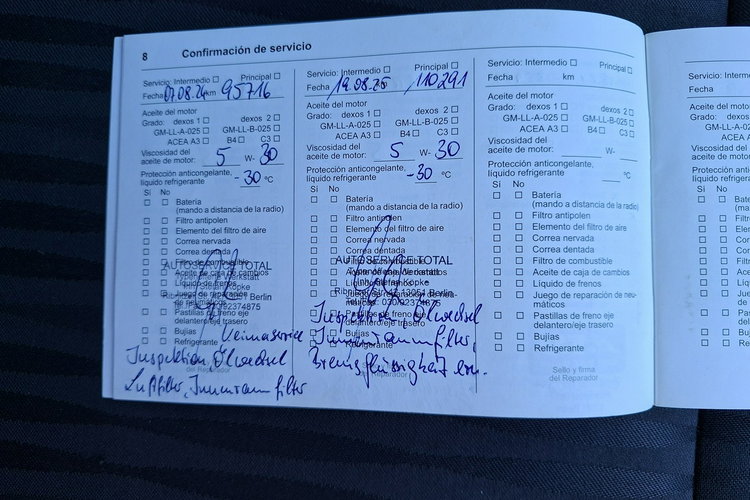 8 Confirmación de servicio
Servicio: Intermedio ☐ Principal ☐
Fecha 07.08.24 km 95716
Aceite del motor
Grado: dexos 1 ☐ dexos 2 ☐
GM-LL-A-025 ☐ GM-LL-B-025 ☐
ACEA A3 ☐ B4 ☐ C3 ☐
Viscosidad del
aceite de motor: 5 W- 30
Protección anticongelante,
líquido refrigerante -30 °C
Sí No
☐ ☐ Batería
(mando a distancia de la radio)
☐ ☐ Filtro antipolen
☐ ☐ Elemento del filtro de aire
☐ ☐ Correa nervada
☐ ☐ Correa dentada
☐ ☐ Filtro de combustible
AUTOSERVICE TOTAL
☐ ☐ Aceite de caja de cambios
☐ ☐ Líquido de frenos
Berlin
☐ ☐ Pastillas de freno eje
delantero/eje trasero
☐ ☐ Bujías
☐ ☐ Refrigerante
Inspektion Ölwechsel
del Reparador
Luftfilter, Innenraumfilter
Servicio: Intermedio ☐ Principal ☐
Fecha 19.08.25 110291
Aceite del motor
Grado: dexos 1 ☐ dexos 2 ☐
GM-LL-A-025 ☐ GM-LL-B-025 ☐
ACEA A3 ☐ B4 ☐ C3 ☐
Viscosidad del
aceite de motor: 5 W- 30
Protección anticongelante,
líquido refrigerante -30 °C
Sí No
☐ ☐ Batería
(mando a distancia de la radio)
☐ ☐ Filtro antipolen
☐ ☐ Elemento del filtro de aire
☐ ☐ Correa nervada
☐ ☐ Correa dentada
AUTOSERVICE TOTAL
13054 Berlin
Pastillas de freno eje
delantero/eje trasero
Inspektion Ölwechsel
☐ Bujías
Innenraumfilter,
Refrigerante
Bremsflüssigkeit ern.
Servicio: Intermedio ☐ Principal ☐
Fecha km
Aceite del motor
Grado: dexos 1 ☐ dexos 2 ☐
GM-LL-A-025 ☐ GM-LL-B-025 ☐
ACEA A3 ☐ B4 ☐ C3 ☐
Viscosidad del
aceite de motor: W-
Protección anticongelante,
líquido refrigerante °C
Sí No
☐ ☐ Batería
(mando a distancia de la radio)
☐ ☐ Filtro antipolen
☐ ☐ Elemento del filtro de aire
☐ ☐ Correa nervada
☐ ☐ Correa dentada
☐ ☐ Filtro de combustible
☐ ☐ Aceite de caja de cambios
☐ ☐ Líquido de frenos
☐ ☐ Juego de reparación de neu-
máticos
☐ ☐ Pastillas de freno eje
delantero/eje trasero
☐ ☐ Bujías
☐ ☐ Refrigerante
Sello y firma
del Reparador
Servicio:
Fecha
Aceite del motor
Grado:
GM-LL-A-02
ACEA
Viscosidad del
aceite de motor:
Protección
líquido
Sí No